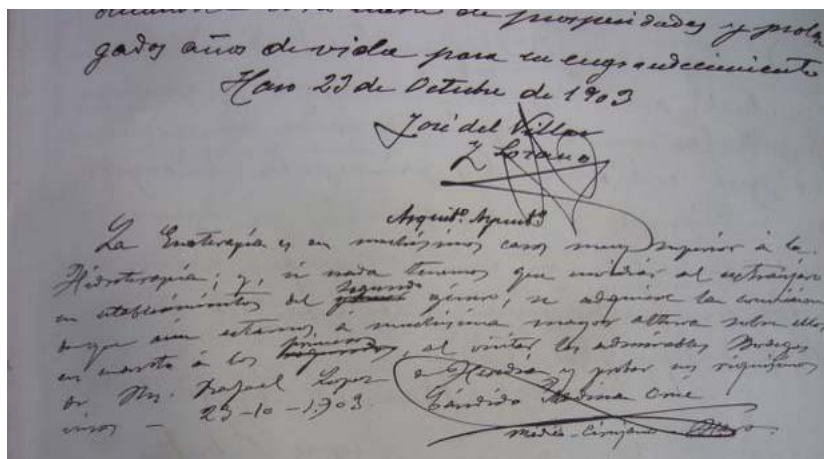 de prosperidades y prolon
gados años de vida para su engrandecimiento
Haro 23 de Octubre de 1903
José del Villar
y Lozano
Arquitº. Ayuntº
La Enoterapia es en muchísimos casos muy superior á la
Hidroterapia; y, si nada tenemos que envidiar al extranjero
en establecimientos del segundo género, se adquiere la convicción
de que aún estamos á muchísima mayor altura sobre ellos,
en cuanto á los primeros, al visitar las admirables Bodegas
de Rafael Lopez de Heredia y probar sus riquísimos
vinos — 23-10-1903.
Candido Medina
Médico-Cirujano